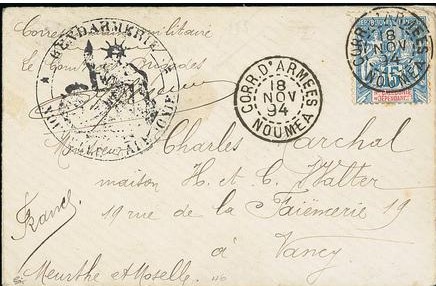 Correspondance militaire
GENDARMERIE
Le
CORR. D'ARMÉES
18
NOV
94
NOUMÉA
CORR. D'ARMÉES
18
NOV
94
NOUMÉA
Monsieur Charles
maison H. et C. Walter
19 rue de la Faïencerie 19
à
Nancy
France
Meurthe et Moselle